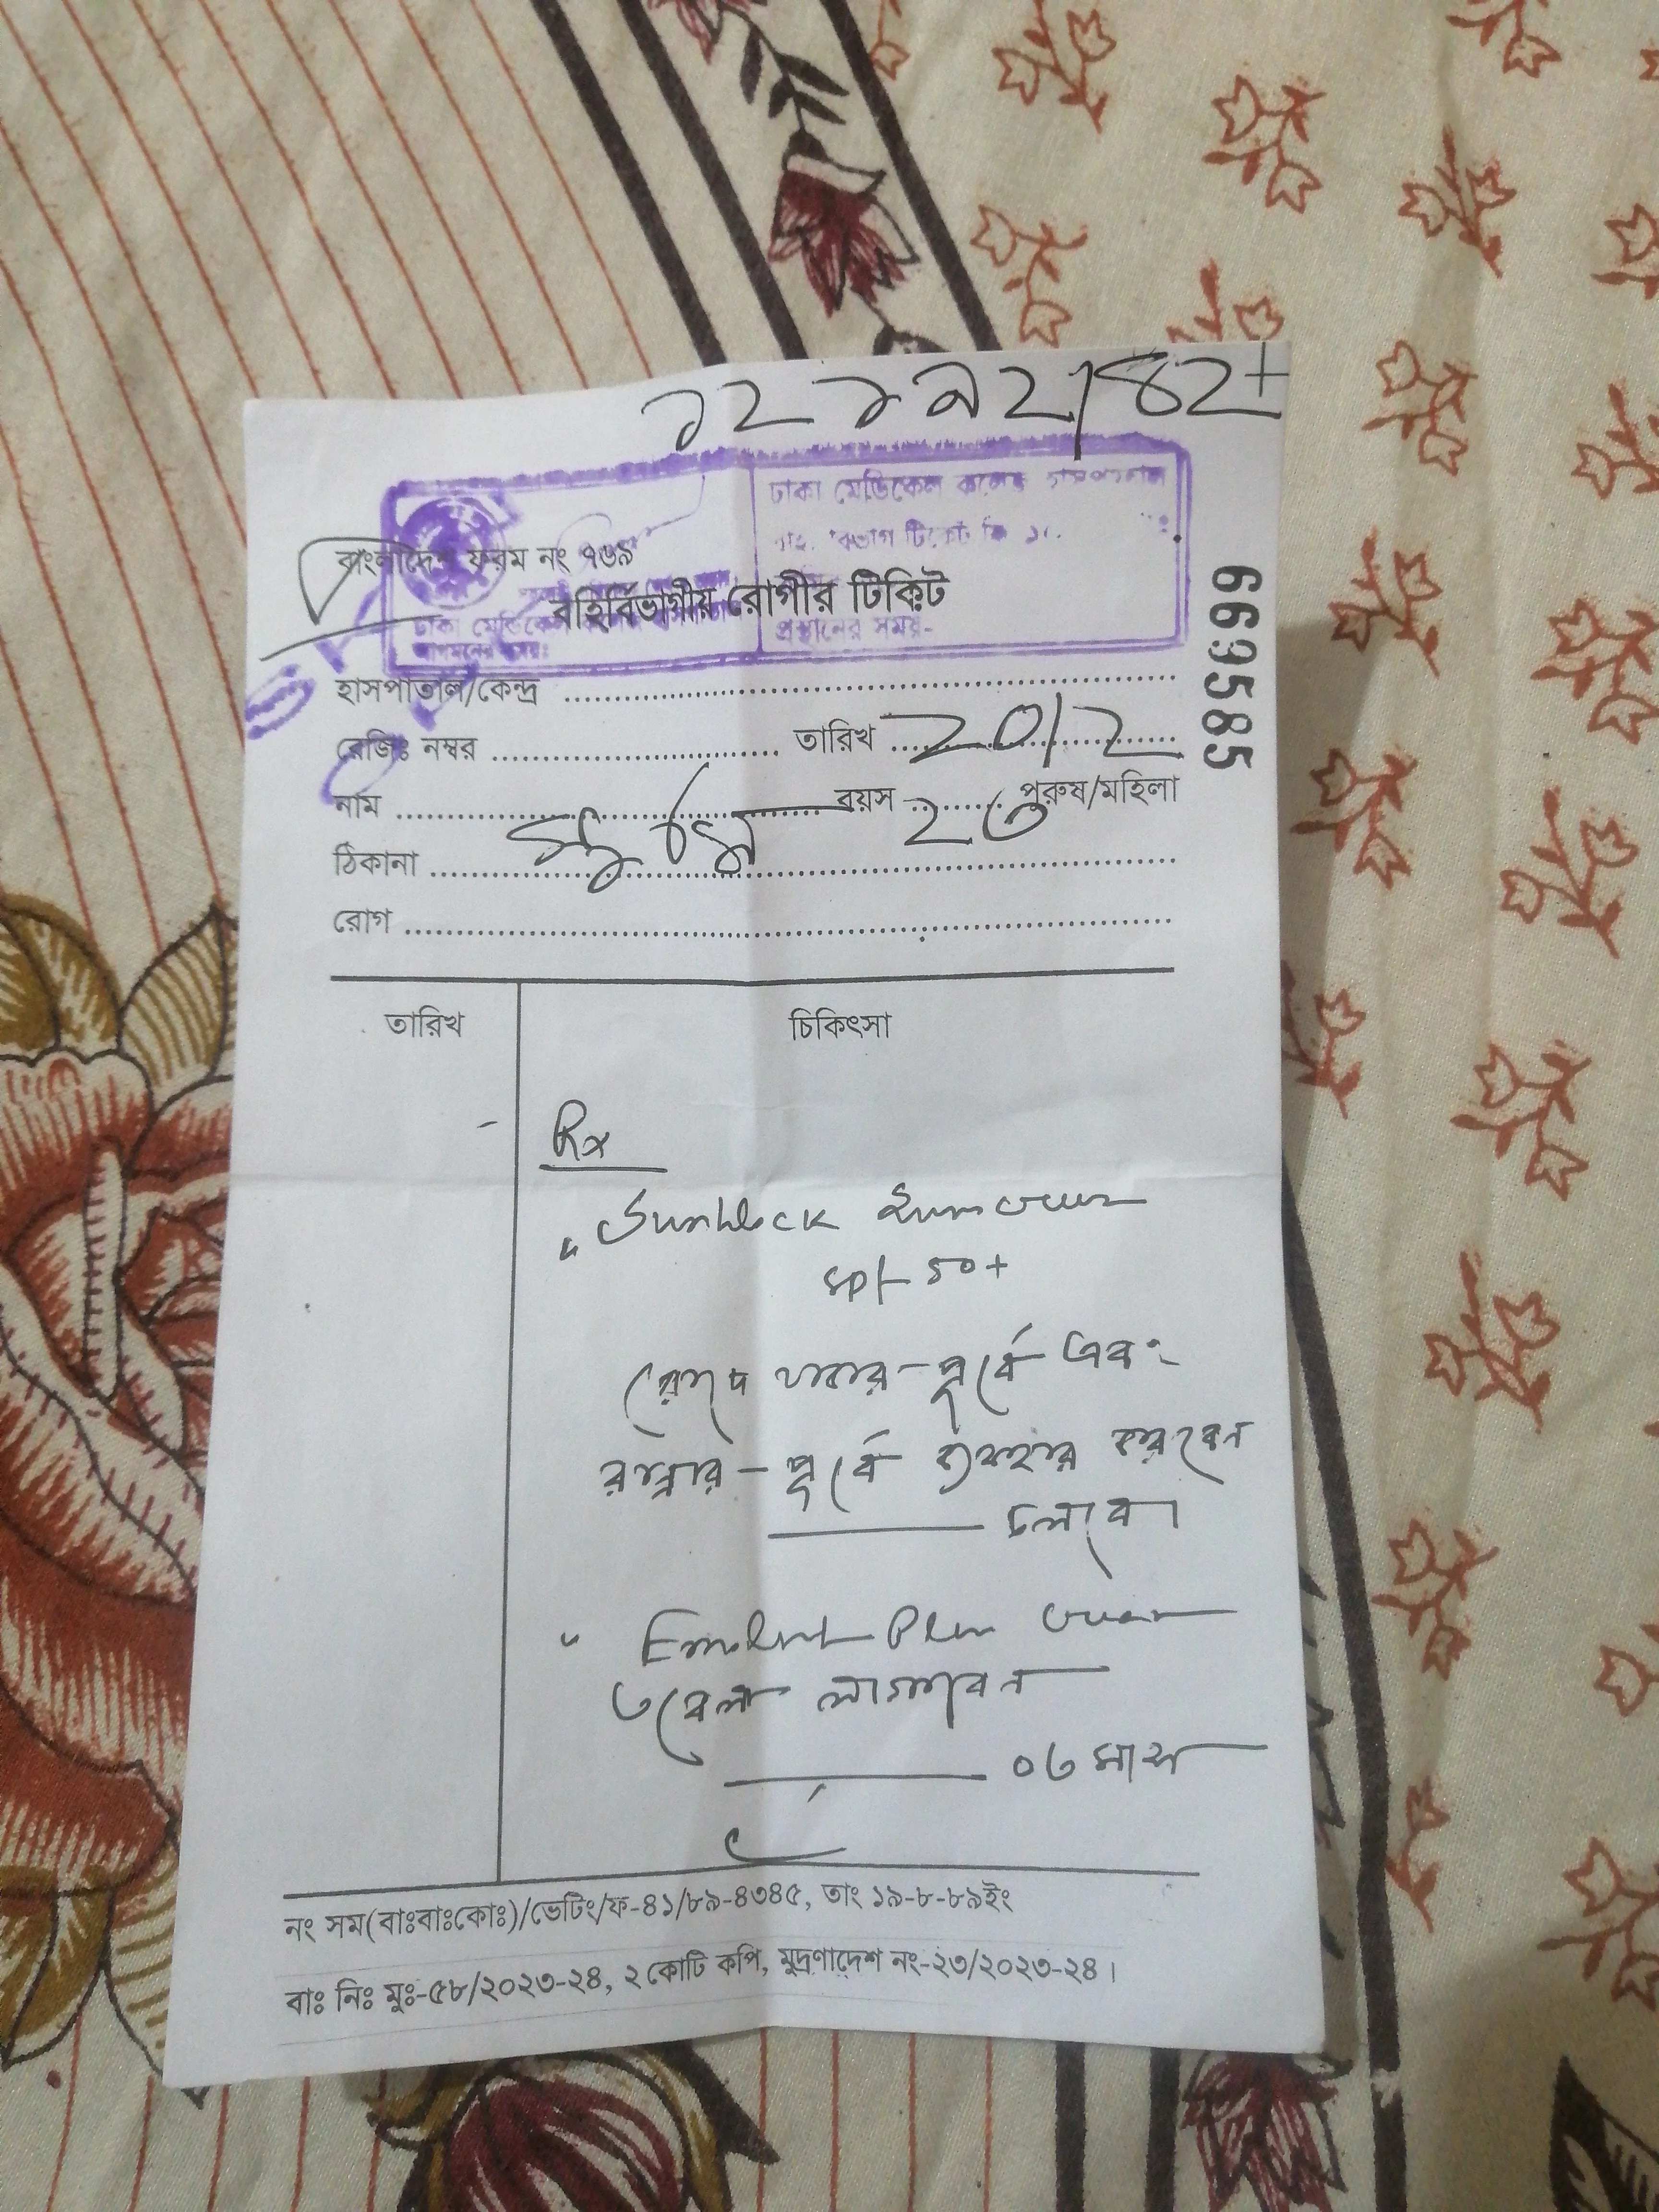 ঢাকা মেডিকেল কলেজ হাসপাতাল
বাংলাদেশ ফরম নং ৭৬৯
বহির্বিভাগীয় রোগীর টিকিট
ঢাকা মেডিকেল
প্রস্থানের সময়-
আগমনের সময়ঃ
669585
হাসপাতাল/কেন্দ্র
রেজিঃ নম্বর তারিখ 20/2
নাম বয়স ২৩ পুরুষ/মহিলা
ঠিকানা
রোগ
তারিখ চিকিৎসা
Rx
Sunblock Suncream
spf 50+
রোদে যাবার পূর্বে এবং
রান্নার পূর্বে ব্যবহার করবেন
চলবে।
Emolent Plus cream
৩ বেলা লাগাবেন
০৩ মাস
নং সম(বাঃবাঃকোঃ)/ভেটিং/ফ-৪১/৮৯-৪৩৪৫, তাং ১৯-৮-৮৯ইং
বাঃ নিঃ মুঃ-৫৮/২০২৩-২৪, ২ কোটি কপি, মুদ্রণাদেশ নং-২৩/২০২৩-২৪।